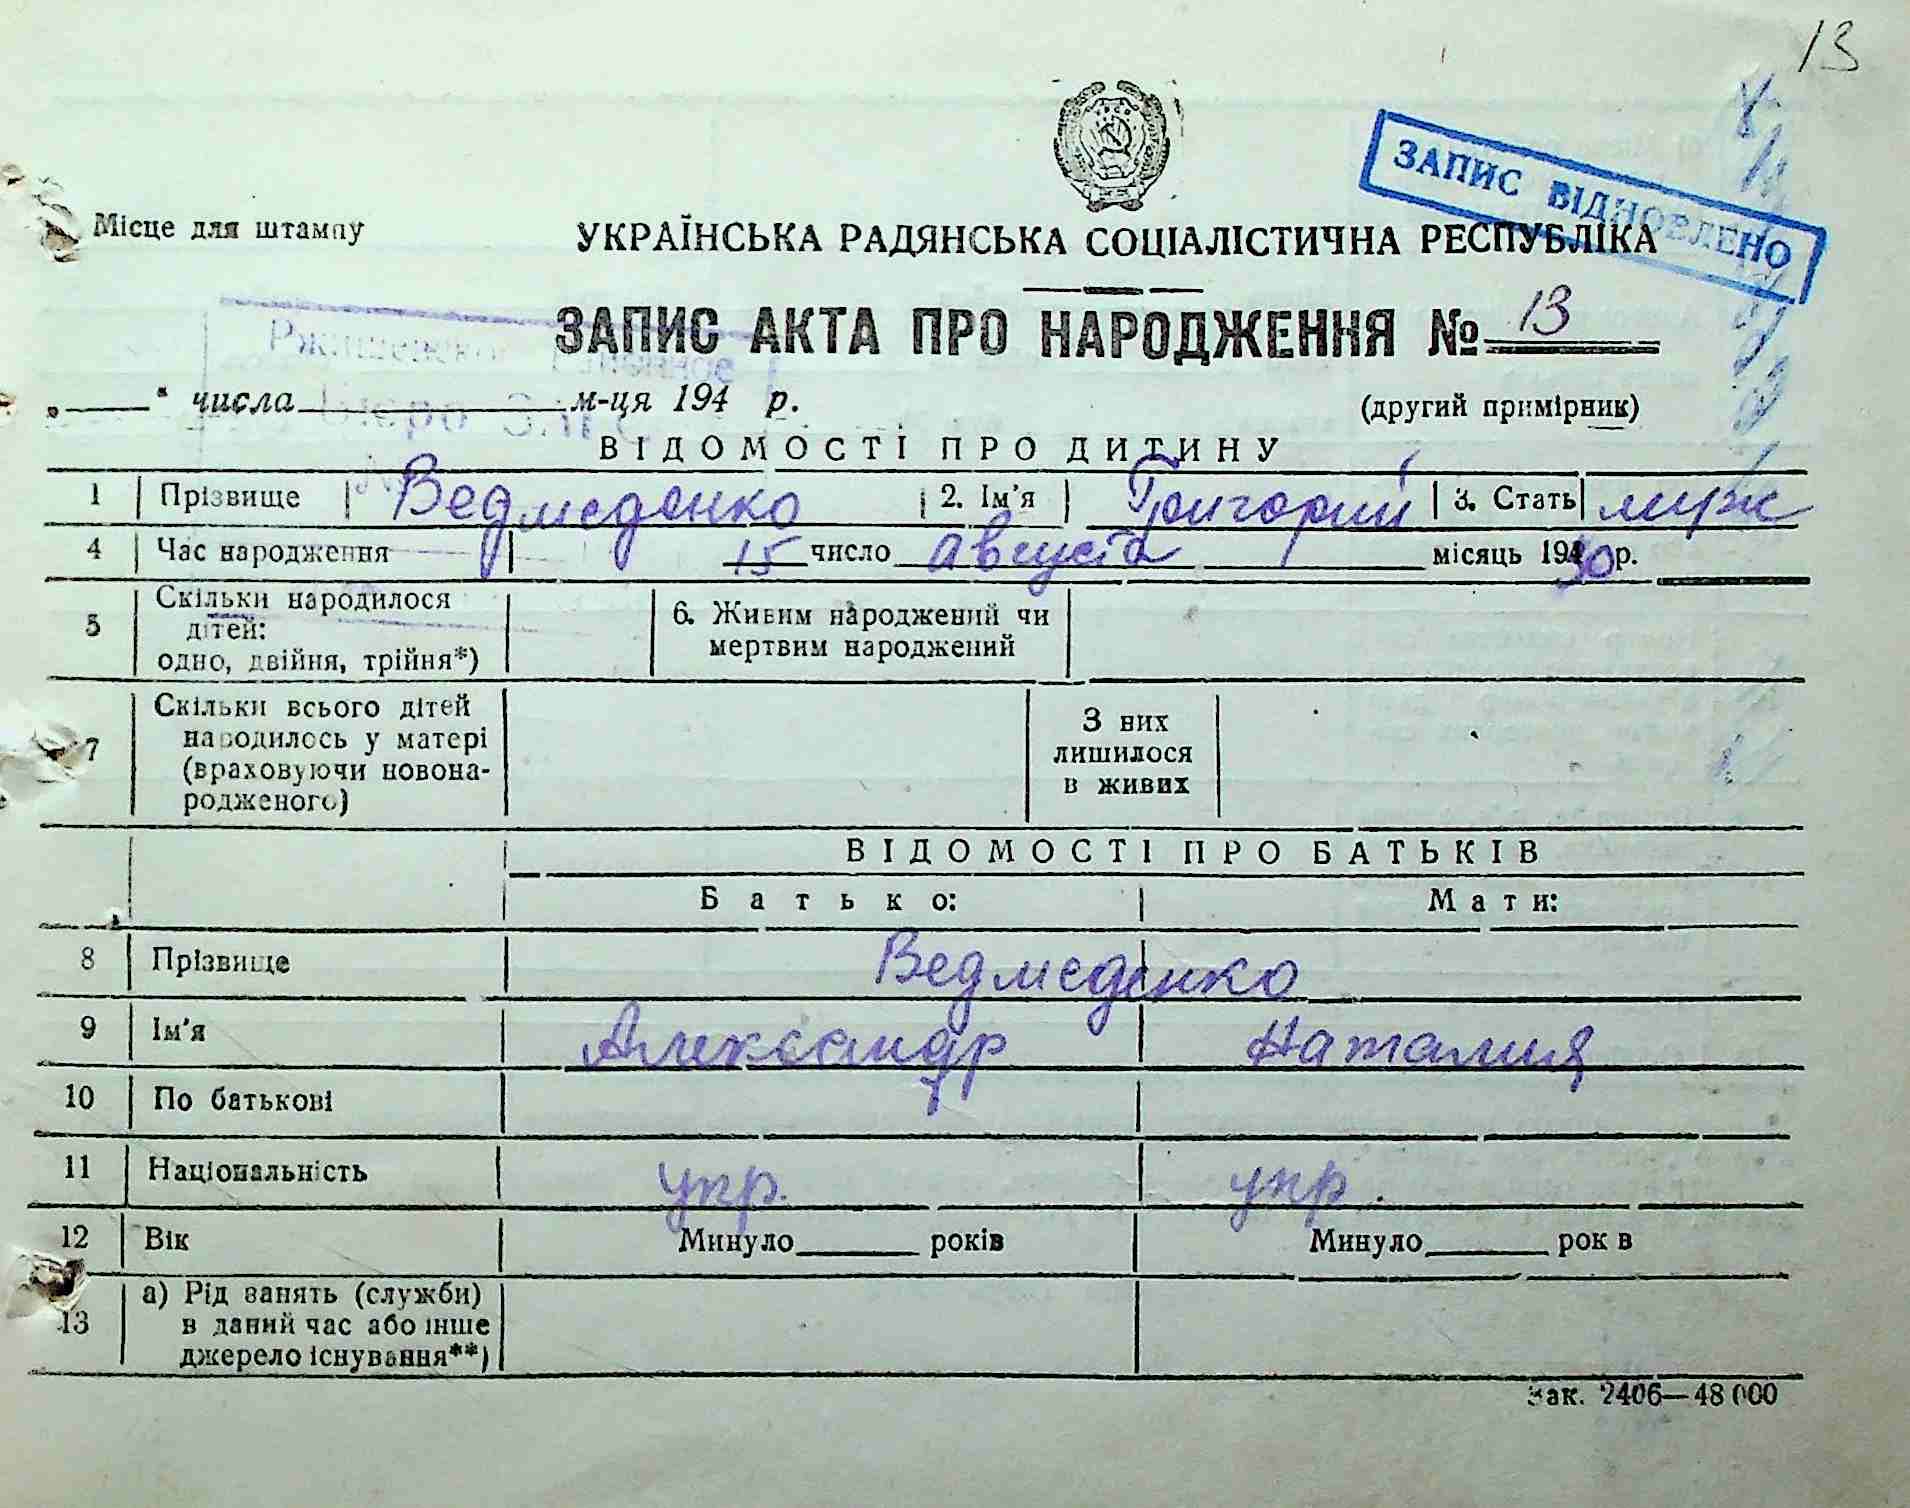 13
ЗАПИС ВІДНОВЛЕНО
Місце для штампу
УКРАЇНСЬКА РАДЯНСЬКА СОЦІАЛІСТИЧНА РЕСПУБЛІКА
ЗАПИС АКТА ПРО НАРОДЖЕННЯ № 13
„ “ числа м-ця 194 р.
(другий примірник)
ВІДОМОСТІ ПРО ДИТИНУ
1 Прізвище Ведмеденко 2. Ім'я Григорий 3. Стать муж
4 Час народження 15 число августа місяць 1930 р.
5 Скільки народилося дітей: одно, двійня, трійня*) 6. Живим народжений чи мертвим народжений
7 Скільки всього дітей народилось у матері (враховуючи новонародженого) З них лишилося в живих
ВІДОМОСТІ ПРО БАТЬКІВ
Батько: Мати:
8 Прізвище Ведмеденко
9 Ім'я Александр Наталия
10 По батькові
11 Національність укр. укр.
12 Вік Минуло років Минуло рок в
13 а) Рід занять (служби) в даний час або інше джерело існування**)
Зак. 2406—48 000